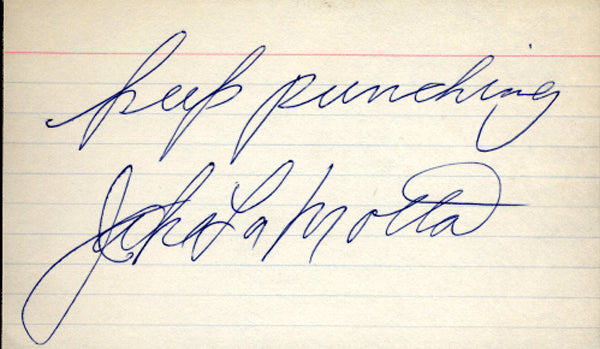 keep punching
Jake La Motta